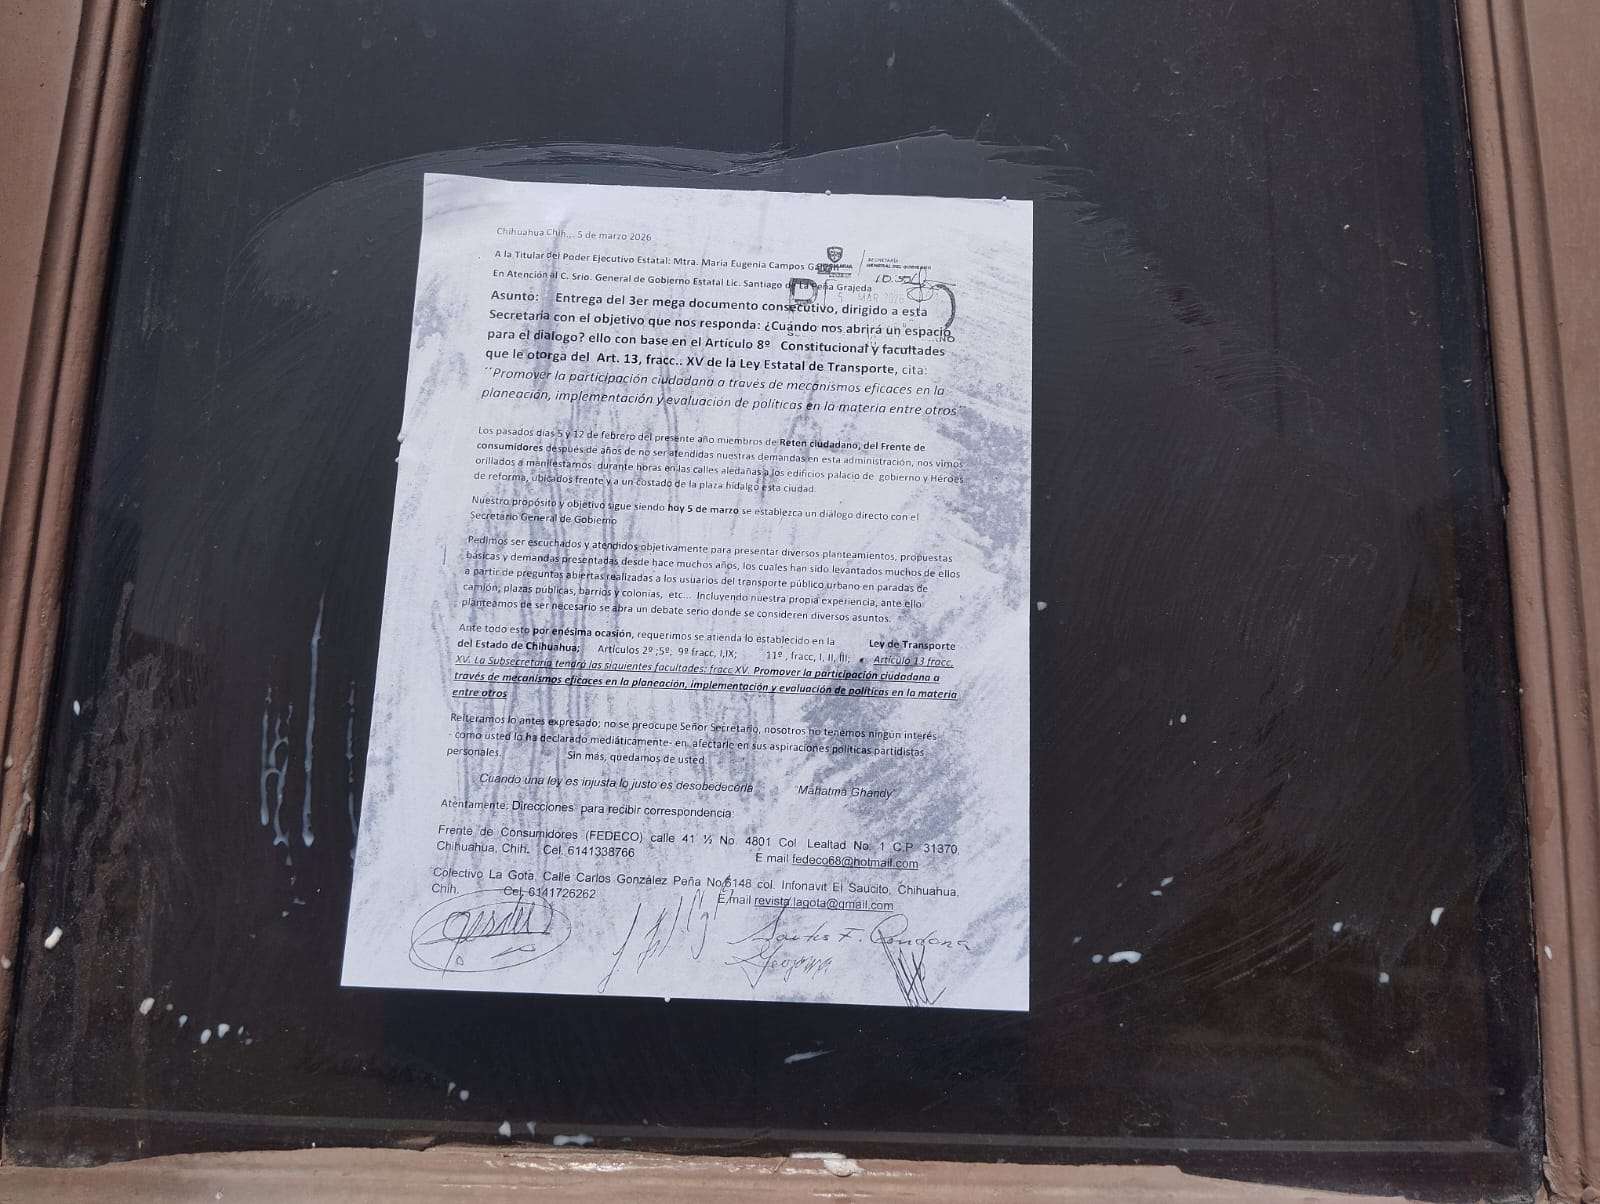 Chihuahua Chih... 5 de marzo 2026
A la Titular del Poder Ejecutivo Estatal: Mtra. Maria Eugenia Campos
SECRETARÍA
GENERAL DEL GOBIERNO
En Atención al C. Srio. General de Gobierno Estatal Lic. Santiago de La Peña Grajeda
5 MAR 2026
Asunto: Entrega del 3er mega documento consecutivo, dirigido a esta
Secretaria con el objetivo que nos responda: ¿Cuándo nos abrirá un espacio
para el dialogo? ello con base en el Artículo 8º Constitucional y facultades
que le otorga del Art. 13, fracc.. XV de la Ley Estatal de Transporte, cita:
´´Promover la participación ciudadana a través de mecanismos eficaces en la
planeación, implementación y evaluación de políticas en la materia entre otros´´
Los pasados días 5 y 12 de febrero del presente año miembros de Reten ciudadano, del Frente de
consumidores después de años de no ser atendidas nuestras demandas en esta administración, nos vimos
orillados a manifestarnos durante horas en las calles aledañas a los edificios palacio de gobierno y Héroes
de reforma, ubicados frente y a un costado de la plaza hidalgo esta ciudad.
Nuestro propósito y objetivo sigue siendo hoy 5 de marzo se establezca un diálogo directo con el
Secretario General de Gobierno
Pedimos ser escuchados y atendidos objetivamente para presentar diversos planteamientos, propuestas
básicas y demandas presentadas desde hace muchos años, los cuales han sido levantados muchos de ellos
a partir de preguntas abiertas realizadas a los usuarios del transporte público urbano en paradas de
camión, plazas publicas, barrios y colonias, etc... Incluyendo nuestra propia experiencia, ante ello
planteamos de ser necesario se abra un debate serio donde se consideren diversos asuntos.
Ante todo esto por enésima ocasión, requerimos se atienda lo establecido en la Ley de Transporte
del Estado de Chihuahua; Artículos 2º ;5º, 9º fracc, I,IX; 11º , fracc, I, II, III; Artículo 13 fracc.
XV. La Subsecretaría tendrá las siguientes facultades: fracc XV. Promover la participación ciudadana a
través de mecanismos eficaces en la planeación, implementación y evaluación de políticas en la materia
entre otros
Reiteramos lo antes expresado; no se preocupe Señor Secretario, nosotros no tenemos ningún interés
- como usted lo ha declarado mediáticamente- en afectarle en sus aspiraciones políticas partidistas
personales. Sin más, quedamos de usted.
Cuando una ley es injusta lo justo es desobedecerla "Mahatma Ghandy"
Aténtamente: Direcciones para recibir correspondencia:
Frente de Consumidores (FEDECO) calle 41 ½ No. 4801 Col Lealtad No. 1 C.P 31370,
Chihuahua, Chih. Cel. 6141338766 E mail fedeco68@hotmail.com
Colectivo La Gota, Calle Carlos González Peña No.6148 col. Infonavit El Saucito, Chihuahua,
Chih. Cel. 6141726262 E,mail revista.lagota@gmail.com